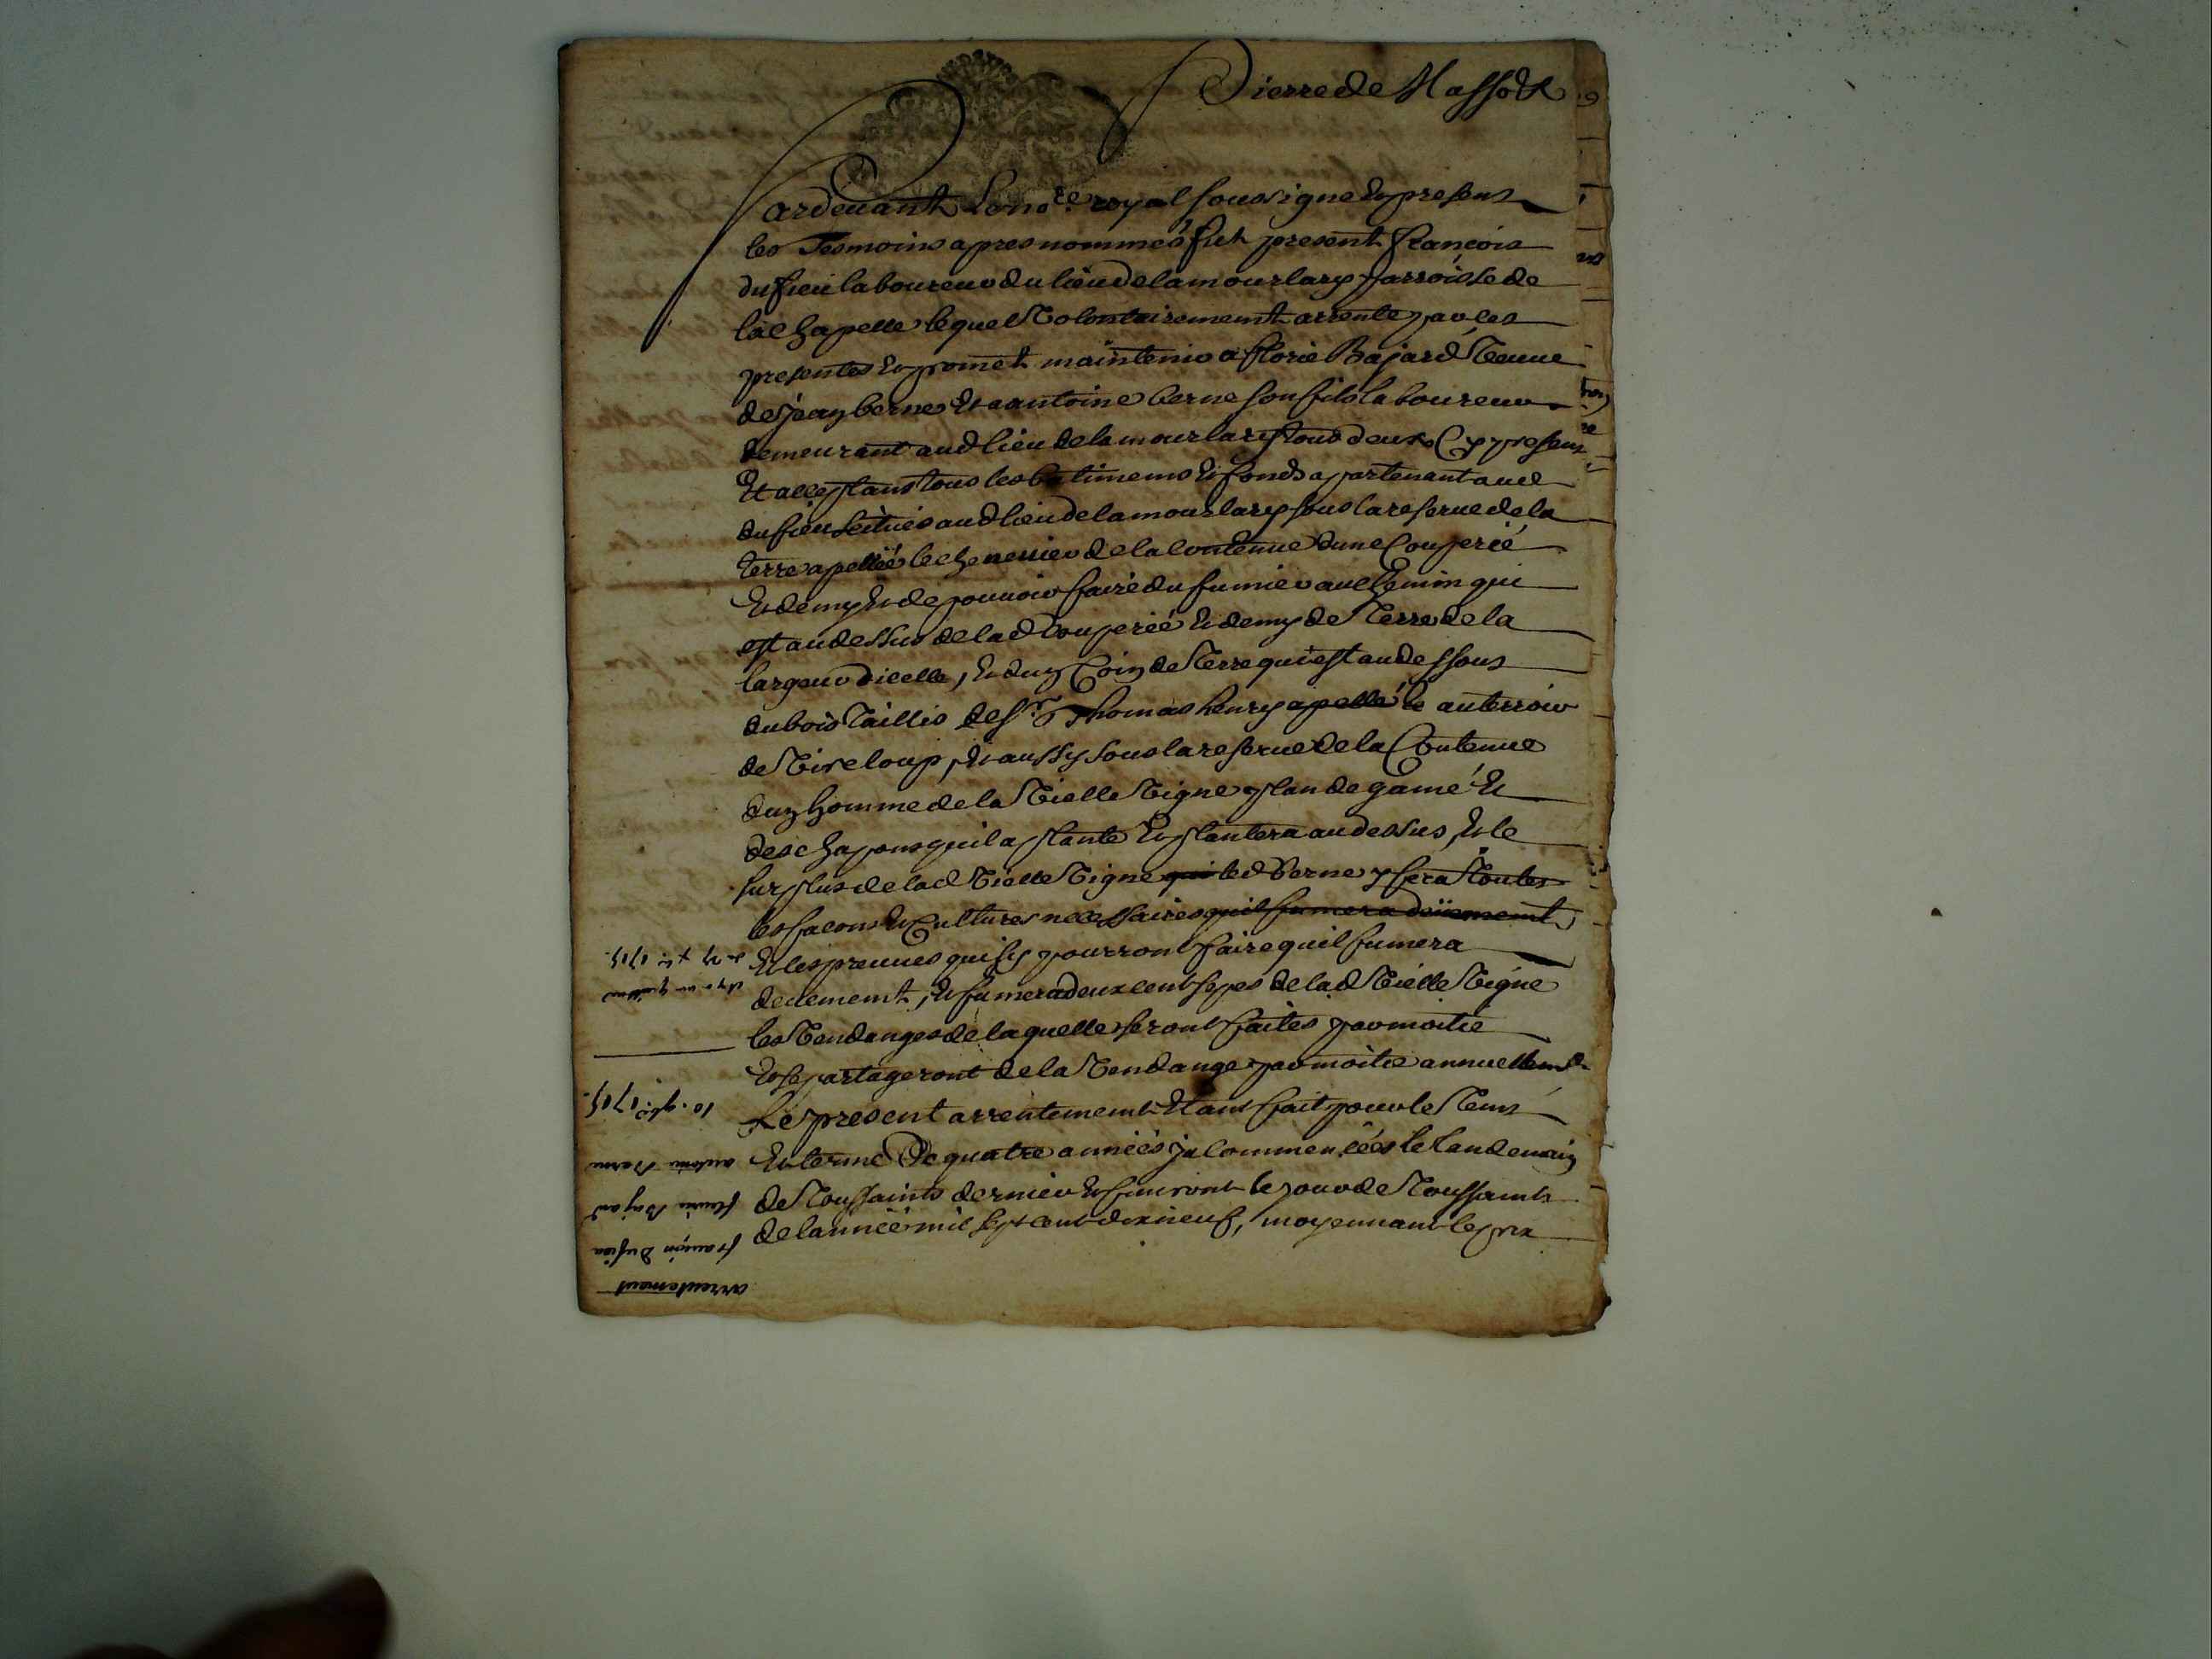 Pierre de Massot
Pardevant Le no.re royal soussigné et presens
les Tesmoins apres nommés fut present François
dufieu laboureur du lieu de lamourlary parroisse de
la Chapelle lequel Volontairement arrente par les
presentes et promet maintenir a florie Bajard Veuve
de jean berne et a antoine berne son fils laboureur
demeurant aud lieu de lamourlary tous deux Cy presens
et acceptans tous les batimens et fonds apartenant aud
dufieu scituéo aud lieu de lamourlary sous la reserve de la
terre apellée le chenevier de la contenue dune Couperée
et demy et de pouvoir faire du fumier au chemin qui
est au dessus de lad Couperée et demy de Terre de la
largeur dicelle, et dun Coin de Terre qui est au dessous
du bois Taillis de sr. Thomas henry apellé le au terroir
de Vireloup, et aussy sous la reserve de la Contenue
dun homme de la Vielle Vigne plan de gamé et
des chapons quil a planté et plantera au dessus, et le
surplus de lad Vielle Vigne que led Berne y fera toutes
les facons et Cultures necessaires quil fumera deüement
et les preuves qui sy pourront faire quil fumera
deuement, et fumera deux cent seps de lad Vielle Vigne
les Vendanges de laquelle seront faites par moitié
et se partageront de la Vendange par moitié annuellemt.
Le present arrentement etant fait pour le Tems
et terme de quatre années ja commencées le landemain
de Toussaints dernier et finiront le jour de Toussaints
de lannée mil sept cent dix neuf, moyennant le prix
arrentement
françois Dufieu
florie Bajard
antoine Berne
10. 9bre. 1715.
1715.